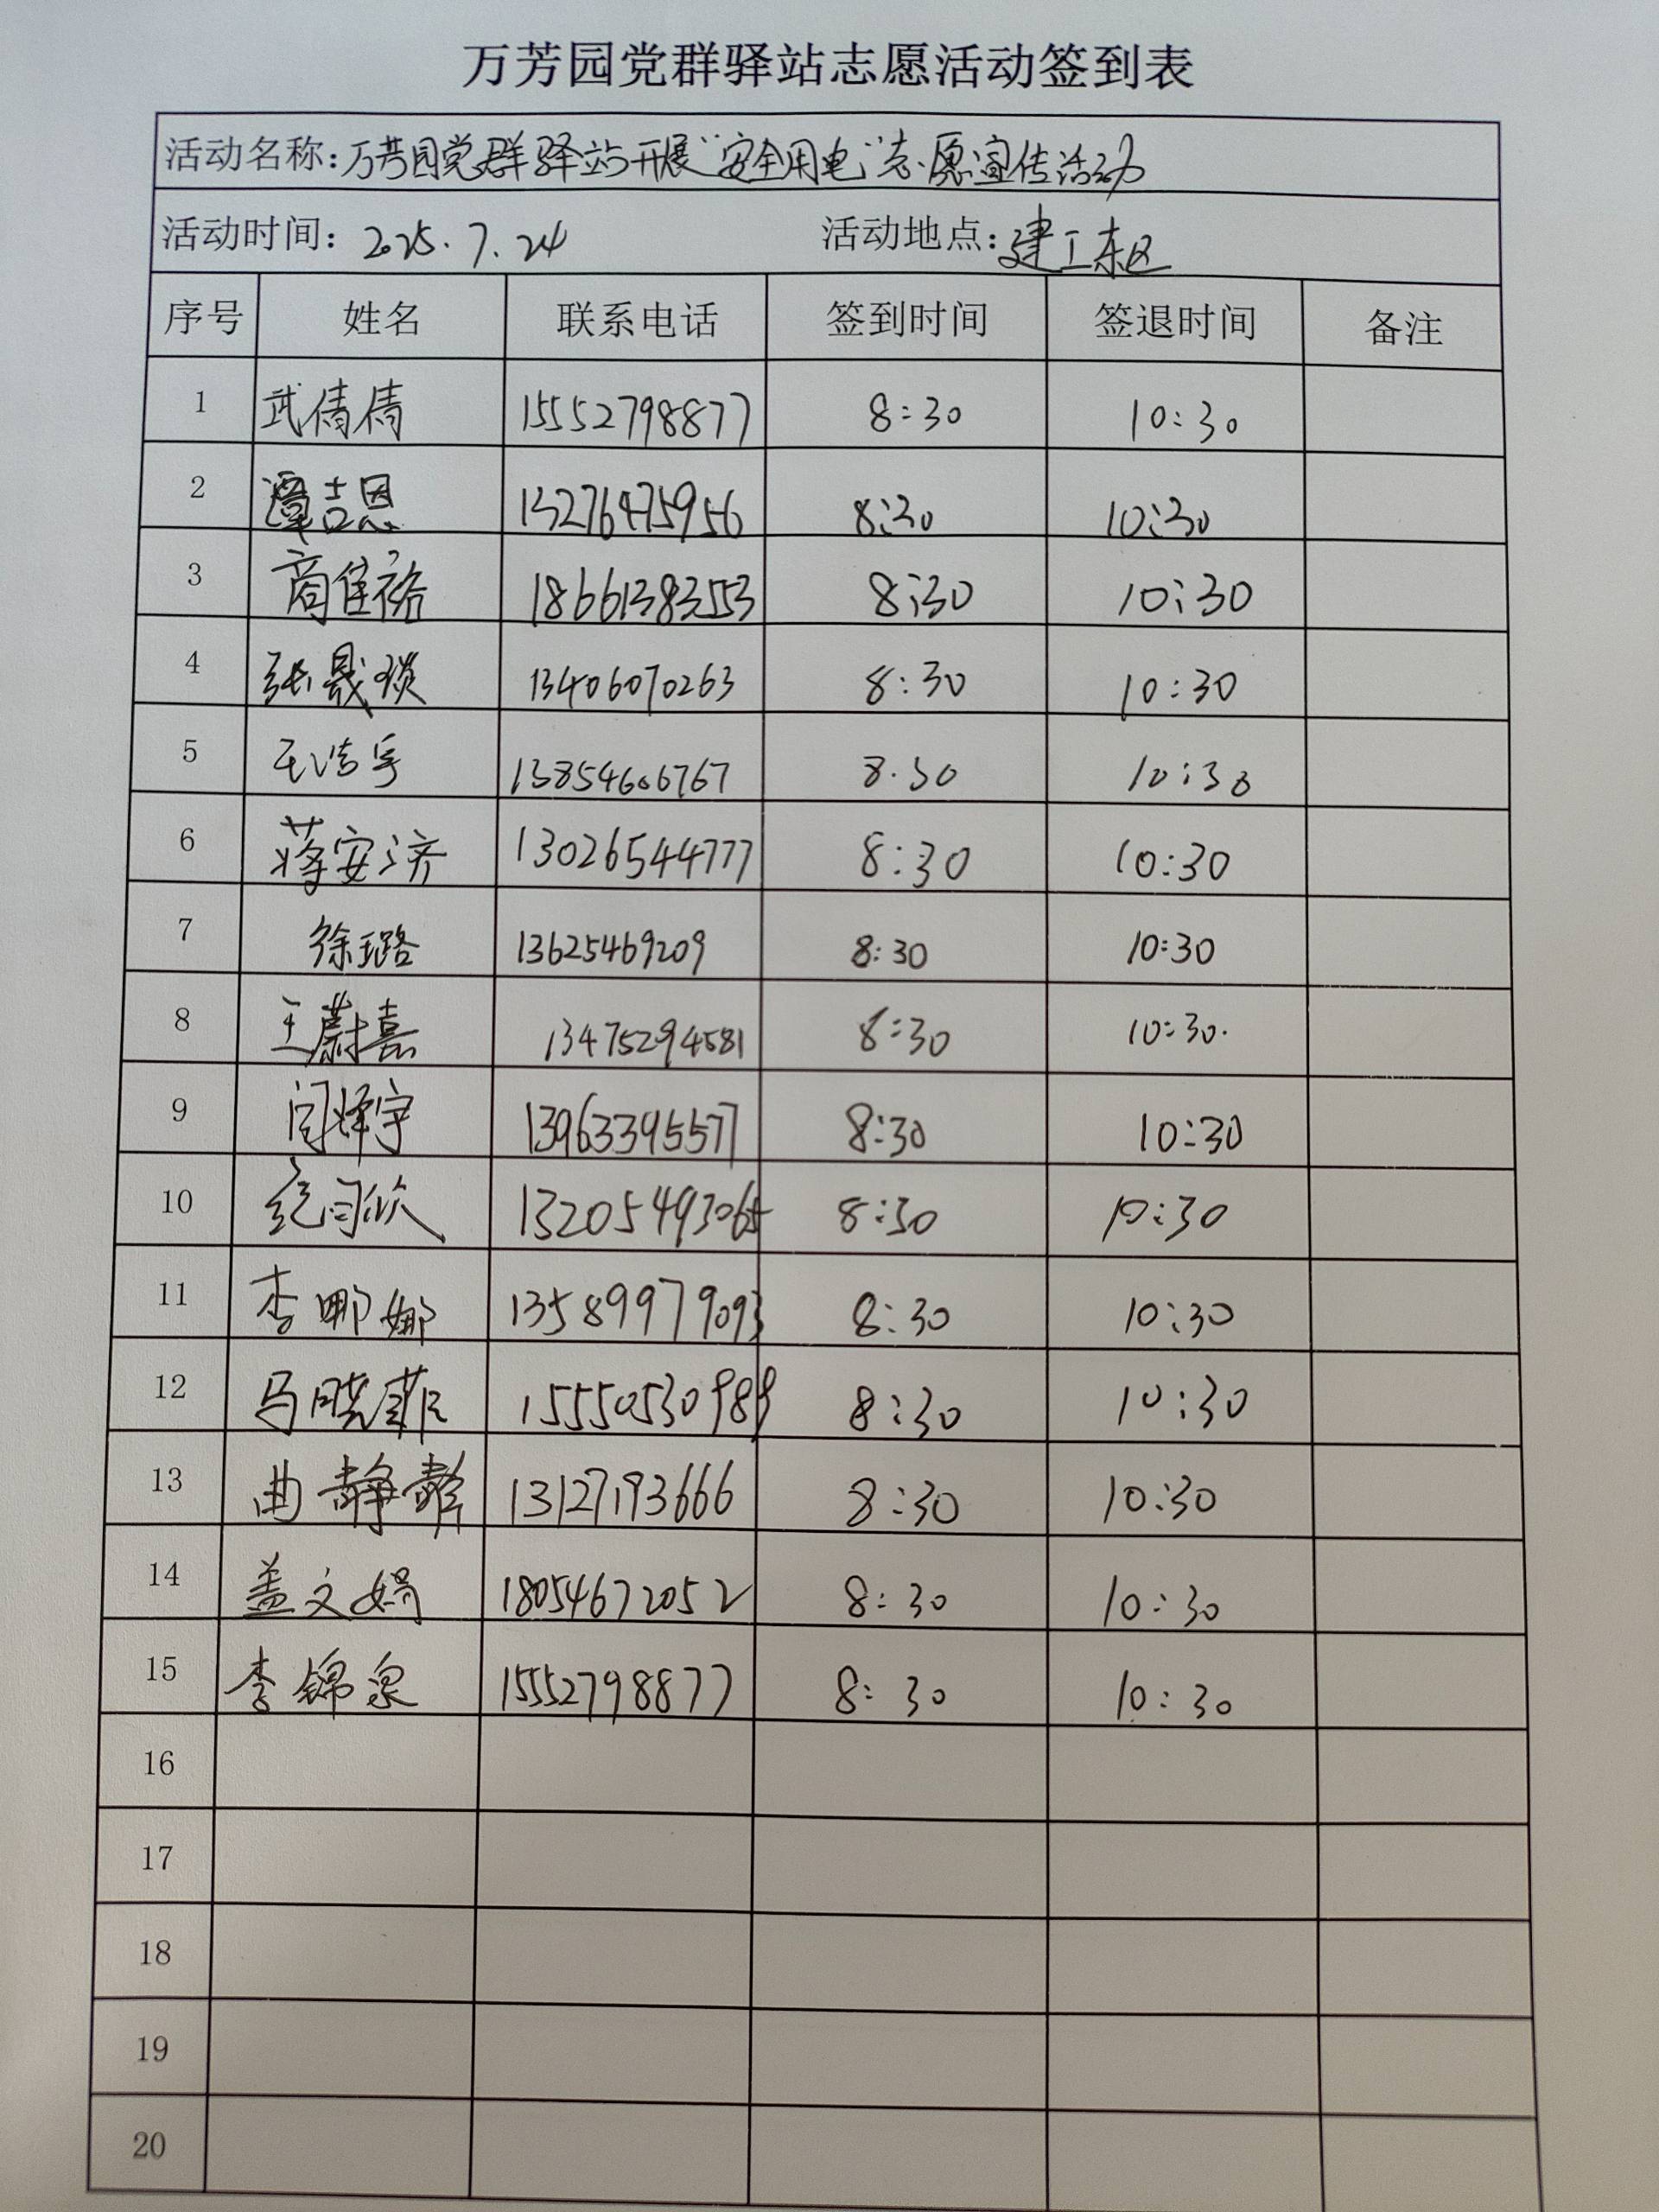 万芳园党群驿站志愿活动签到表
活动名称:万芳园党群驿站开展“安全用电”志愿宣传活动
活动时间: 2025.7.24 活动地点:建工东区
序号 姓名 联系电话 签到时间 签退时间 备注
1 武倩倩 15552798877 8:30 10:30
2 谭吉恩 13276475956 8:30 10:30
3 商佳裕 18661383553 8:30 10:30
4 张晟琰 13406070263 8:30 10:30
5 王浩宇 13854606767 8.30 10:30
6 蒋安济 13026544777 8:30 10:30
7 徐璐 13625469209 8:30 10:30
8 王蔚嘉 13475294581 8:30 10:30.
9 闫泽宇 13963395577 8:30 10:30
10 13205493065 8:30 10:30
11 李娜娜 13589979093 8:30 10:30
12 马晓菲 15550530989 8:30 10:30
13 曲静静 13127193666 8:30 10:30
14 盖文娟 18054672052 8:30 10:30
15 李锦泉 15552798877 8:30 10:30
16
17
18
19
20